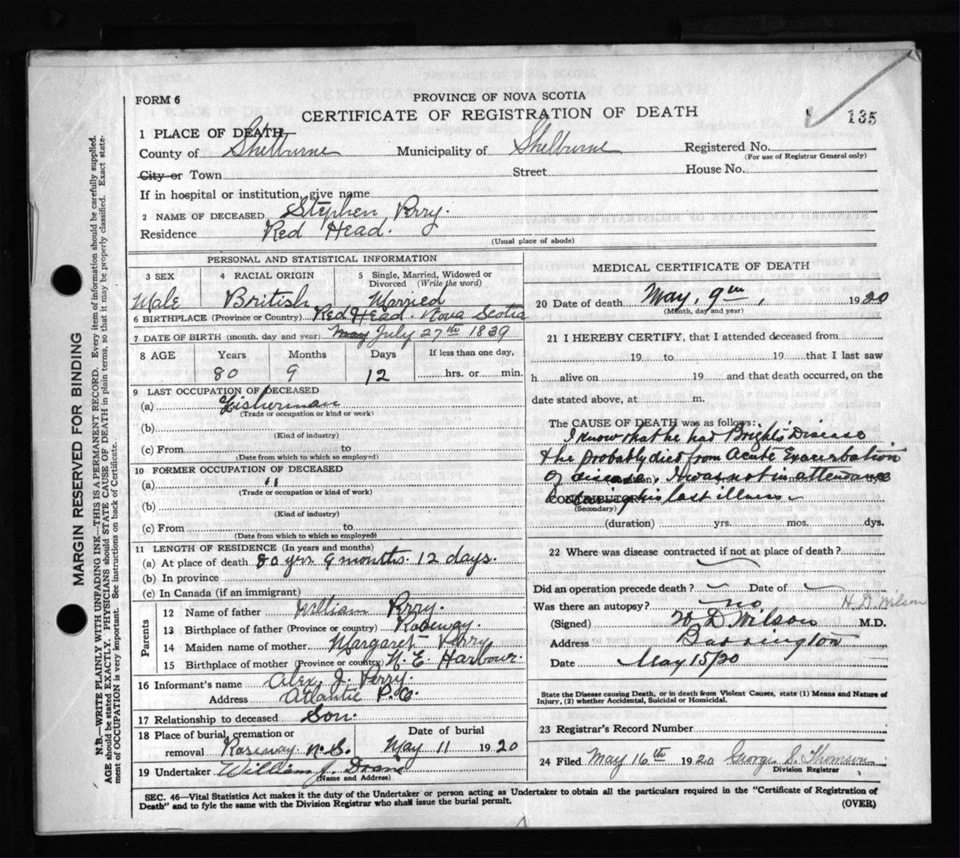 FORM 6
PROVINCE OF NOVA SCOTIA
CERTIFICATE OF REGISTRATION OF DEATH
135
1 PLACE OF DEATH
County of Shelburne Municipality of Shelburne Registered No.
(For use of Registrar General only)
City or Town Street House No.
If in hospital or institution, give name
2 NAME OF DECEASED Stephen Perry.
Residence Red Head.
(Usual place of abode)
PERSONAL AND STATISTICAL INFORMATION
3 SEX 4 RACIAL ORIGIN 5 Single, Married, Widowed or Divorced (Write the word)
Male British Married
6 BIRTHPLACE (Province or Country) Red Head. Nova Scotia
7 DATE OF BIRTH (month, day and year) May July 27th 1839
8 AGE Years Months Days If less than one day,
80 9 12 hrs. or min.
9 LAST OCCUPATION OF DECEASED
(a) Fisherman
(Trade or occupation or kind or work)
(b)
(Kind of industry)
(c) From to
(Date from which to which so employed)
10 FORMER OCCUPATION OF DECEASED
(a) "
(Trade or occupation or kind of work)
(b)
(Kind of industry)
(c) From to
(Date from which to which so employed)
11 LENGTH OF RESIDENCE (In years and months)
(a) At place of death 80 yrs 9 months. 12 days.
(b) In province
(c) In Canada (if an immigrant)
Parents
12 Name of father William Perry.
13 Birthplace of father (Province or country) Roseway.
14 Maiden name of mother Margaret Perry
15 Birthplace of mother (Province or country) N. E. Harbour.
16 Informant's name Alex J. Perry.
Address Atlantic P. O.
17 Relationship to deceased Son.
18 Place of burial, cremation or removal Roseway N.S. Date of burial May 11 1920
19 Undertaker William J.
(Name and Address)
MEDICAL CERTIFICATE OF DEATH
20 Date of death May, 9th, 1920
(Month, day and year)
21 I HEREBY CERTIFY, that I attended deceased from
19 to 19 that I last saw
h alive on 19 and that death occurred, on the
date stated above, at m.
The CAUSE OF DEATH was as follows:
I know that he had Bright's Disease
& he probably died from Acute Exacerbation
of disease, I was not in attendance
CONTRIBUTORY during his last illness
(Secondary)
(duration) yrs. mos. dys.
22 Where was disease contracted if not at place of death?
Did an operation precede death? Date of
Was there an autopsy? no H. D. Wilson
(Signed) H D Wilson M.D.
Address Barrington
Date May 15/20
State the Disease causing Death, or in death from Violent Causes, state (1) Means and Nature of
Injury, (2) whether Accidental, Suicidal or Homicidal.
23 Registrar's Record Number
24 Filed May 16th 1920 George S. Thomson
Division Registrar
SEC. 46—Vital Statistics Act makes it the duty of the Undertaker or person acting as Undertaker to obtain all the particulars required in the "Certificate of Registration of
Death" and to fyle the same with the Division Registrar who shall issue the burial permit.
(OVER)
MARGIN RESERVED FOR BINDING
N.B.—WRITE PLAINLY WITH UNFADING INK—THIS IS A PERMANENT RECORD. Every item of information should be carefully supplied.
AGE should be stated EXACTLY. PHYSICIANS should STATE CAUSE OF DEATH in plain terms, so that it may be properly classified. Exact state-
ment of OCCUPATION is very important. See instructions on back of Certificate.